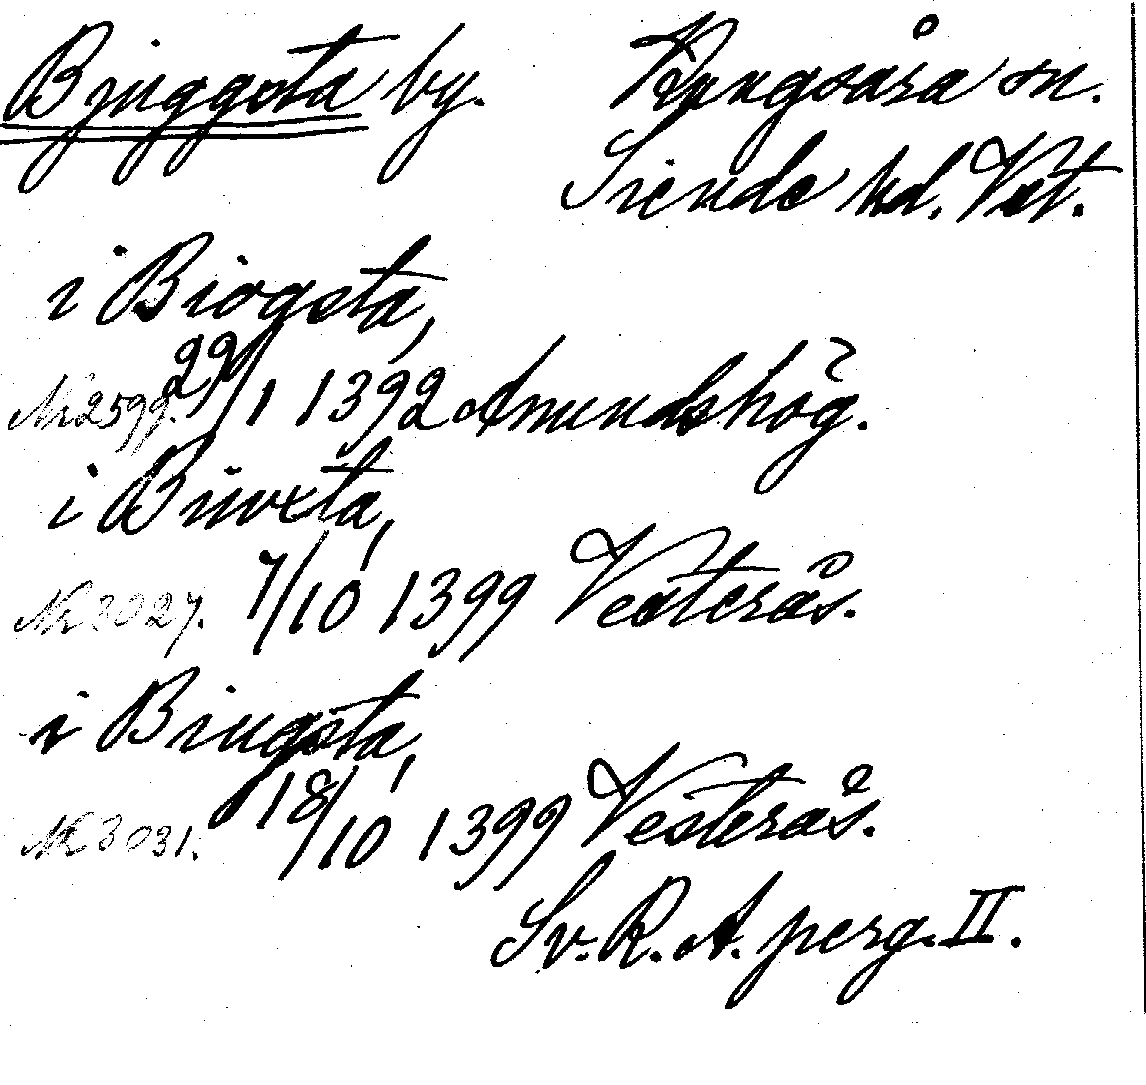 Bjuggsta by. Kungsåra sn.
Siende hd. Vst.
i Biogsta,
Nr 2599. 29/1 1392 Amundshög.
i Biwxta,
Nr 3027. 7/10 1399 Vesterås.
i Biugsta,
Nr 3031. 18/10 1399 Vesterås.
Sv. R. A. perg. II.